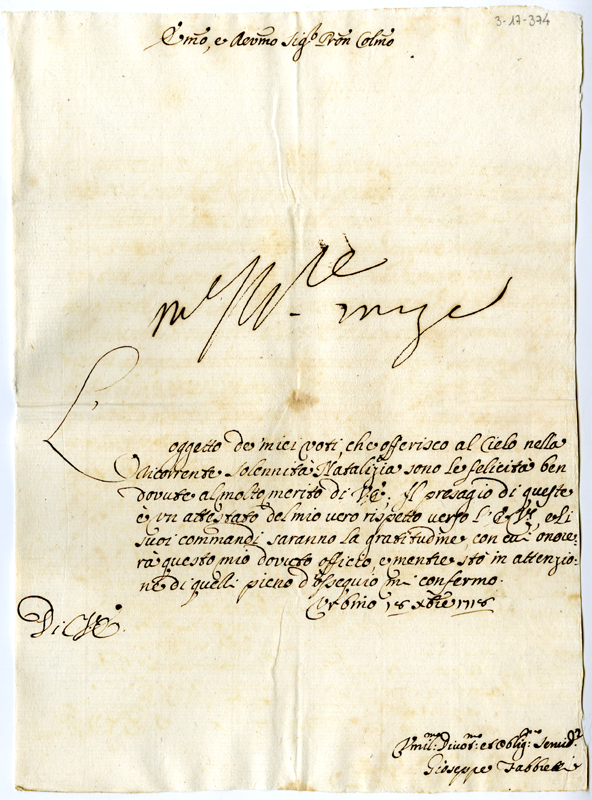 3-17-374
Em̃o, e Revm̃o Sigr̃ Pron̄ Colm̃o
L'oggetto de miei voti, che offerisco al Cielo nella
Ricorrente Solennità Natalizia sono le felicità ben
dovute al molto merito di V.E. Il presagio di queste
è un attestato del mio vero rispetto verso l'E.V., e li
suoi commandi saranno la gratitudine, con cui onore-
rà questo mio dovuto officio, e mentre stò in attenzio-
ne di quelli pieno d'ossequio mi confermo.
Urbino 16 Xbre 1716
Di V.E.
Vmil:mo Divot:mo et oblig:mo Servid:re
Giuseppe